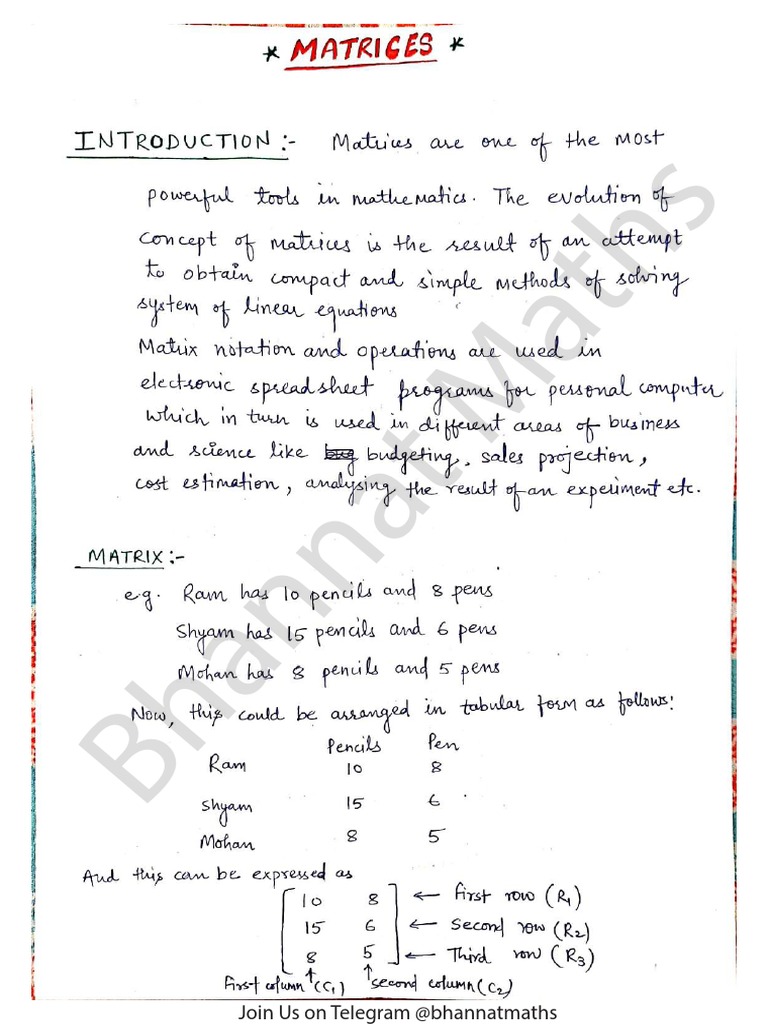 * MATRICES *
INTRODUCTION :- Matrices are one of the most
powerful tools in mathematics. The evolution of
concept of matrices is the result of an attempt
to obtain compact and simple methods of solving
system of linear equations
Matrix notation and operations are used in
electronic spreadsheet programs for personal computer
which in turn is used in different areas of business
and science like budgeting, sales projection,
cost estimation, analysing the result of an experiment etc.
MATRIX :-
e.g. Ram has 10 pencils and 8 pens
Shyam has 15 pencils and 6 pens
Mohan has 8 pencils and 5 pens
Now, this could be arranged in tabular form as follows:
Pencils Pen
Ram 10 8
Shyam 15 6
Mohan 8 5
And this can be expressed as
[10 8] ← First row (R₁)
[15 6] ← Second row (R₂)
[8 5] ← Third row (R₃)
↑ ↑
First column (C₁) second column (C₂)
Bhannat Maths
Join Us on Telegram @bhannatmaths